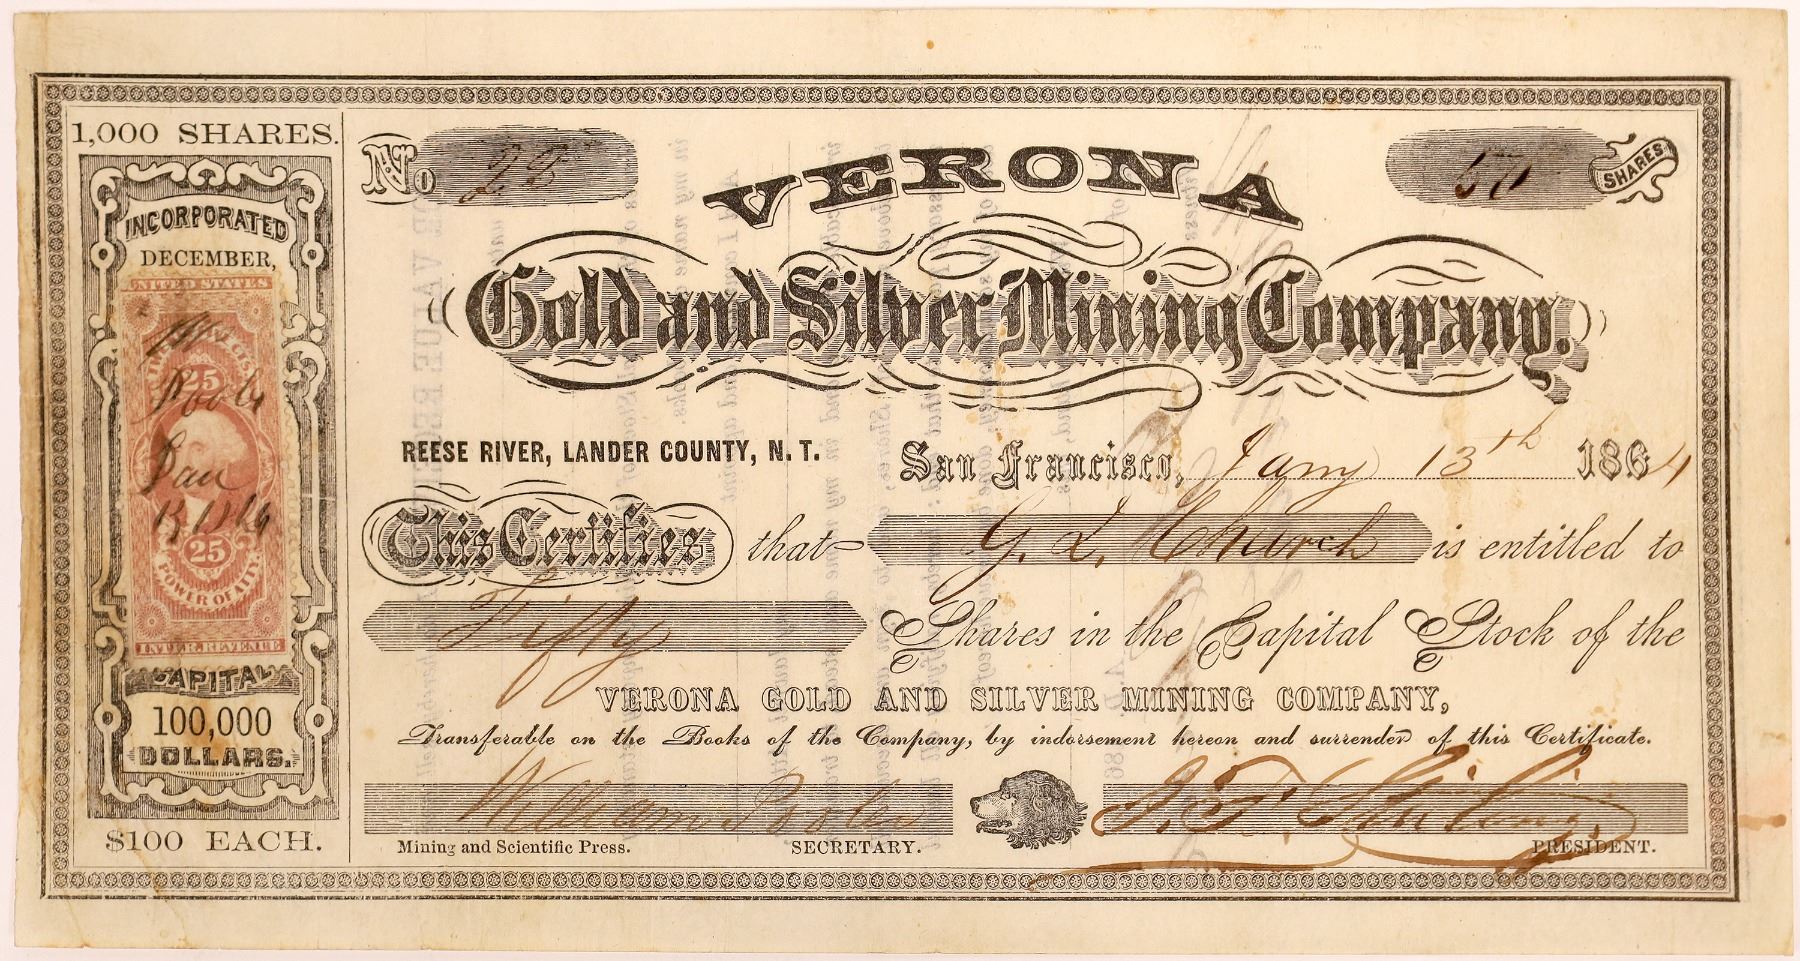 1,000 SHARES.
INCORPORATED
DECEMBER,
UNITED STATES
25
Poole
Jan
13 1864
25
POWER OF ATT'Y
INTER. REVENUE
CAPITAL
100,000
DOLLARS.
$100 EACH.
No 28
50 SHARES
VERONA
Gold and Silver Mining Company.
REESE RIVER, LANDER COUNTY, N. T.
San Francisco, Jany 13th 1864
This Certifies that G. L. Church is entitled to
Fifty Shares in the Capital Stock of the
VERONA GOLD AND SILVER MINING COMPANY,
Transferable on the Books of the Company, by indorsement hereon and surrender of this Certificate.
William Poole
Mining and Scientific Press. SECRETARY. PRESIDENT.